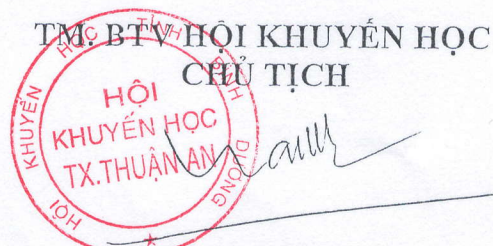 TM. BTV HỘI KHUYẾN HỌC
CHỦ TỊCH
HỘI KHUYẾN HỌC TỈNH BÌNH DƯƠNG
HỘI
KHUYẾN HỌC
TX.THUẬN AN